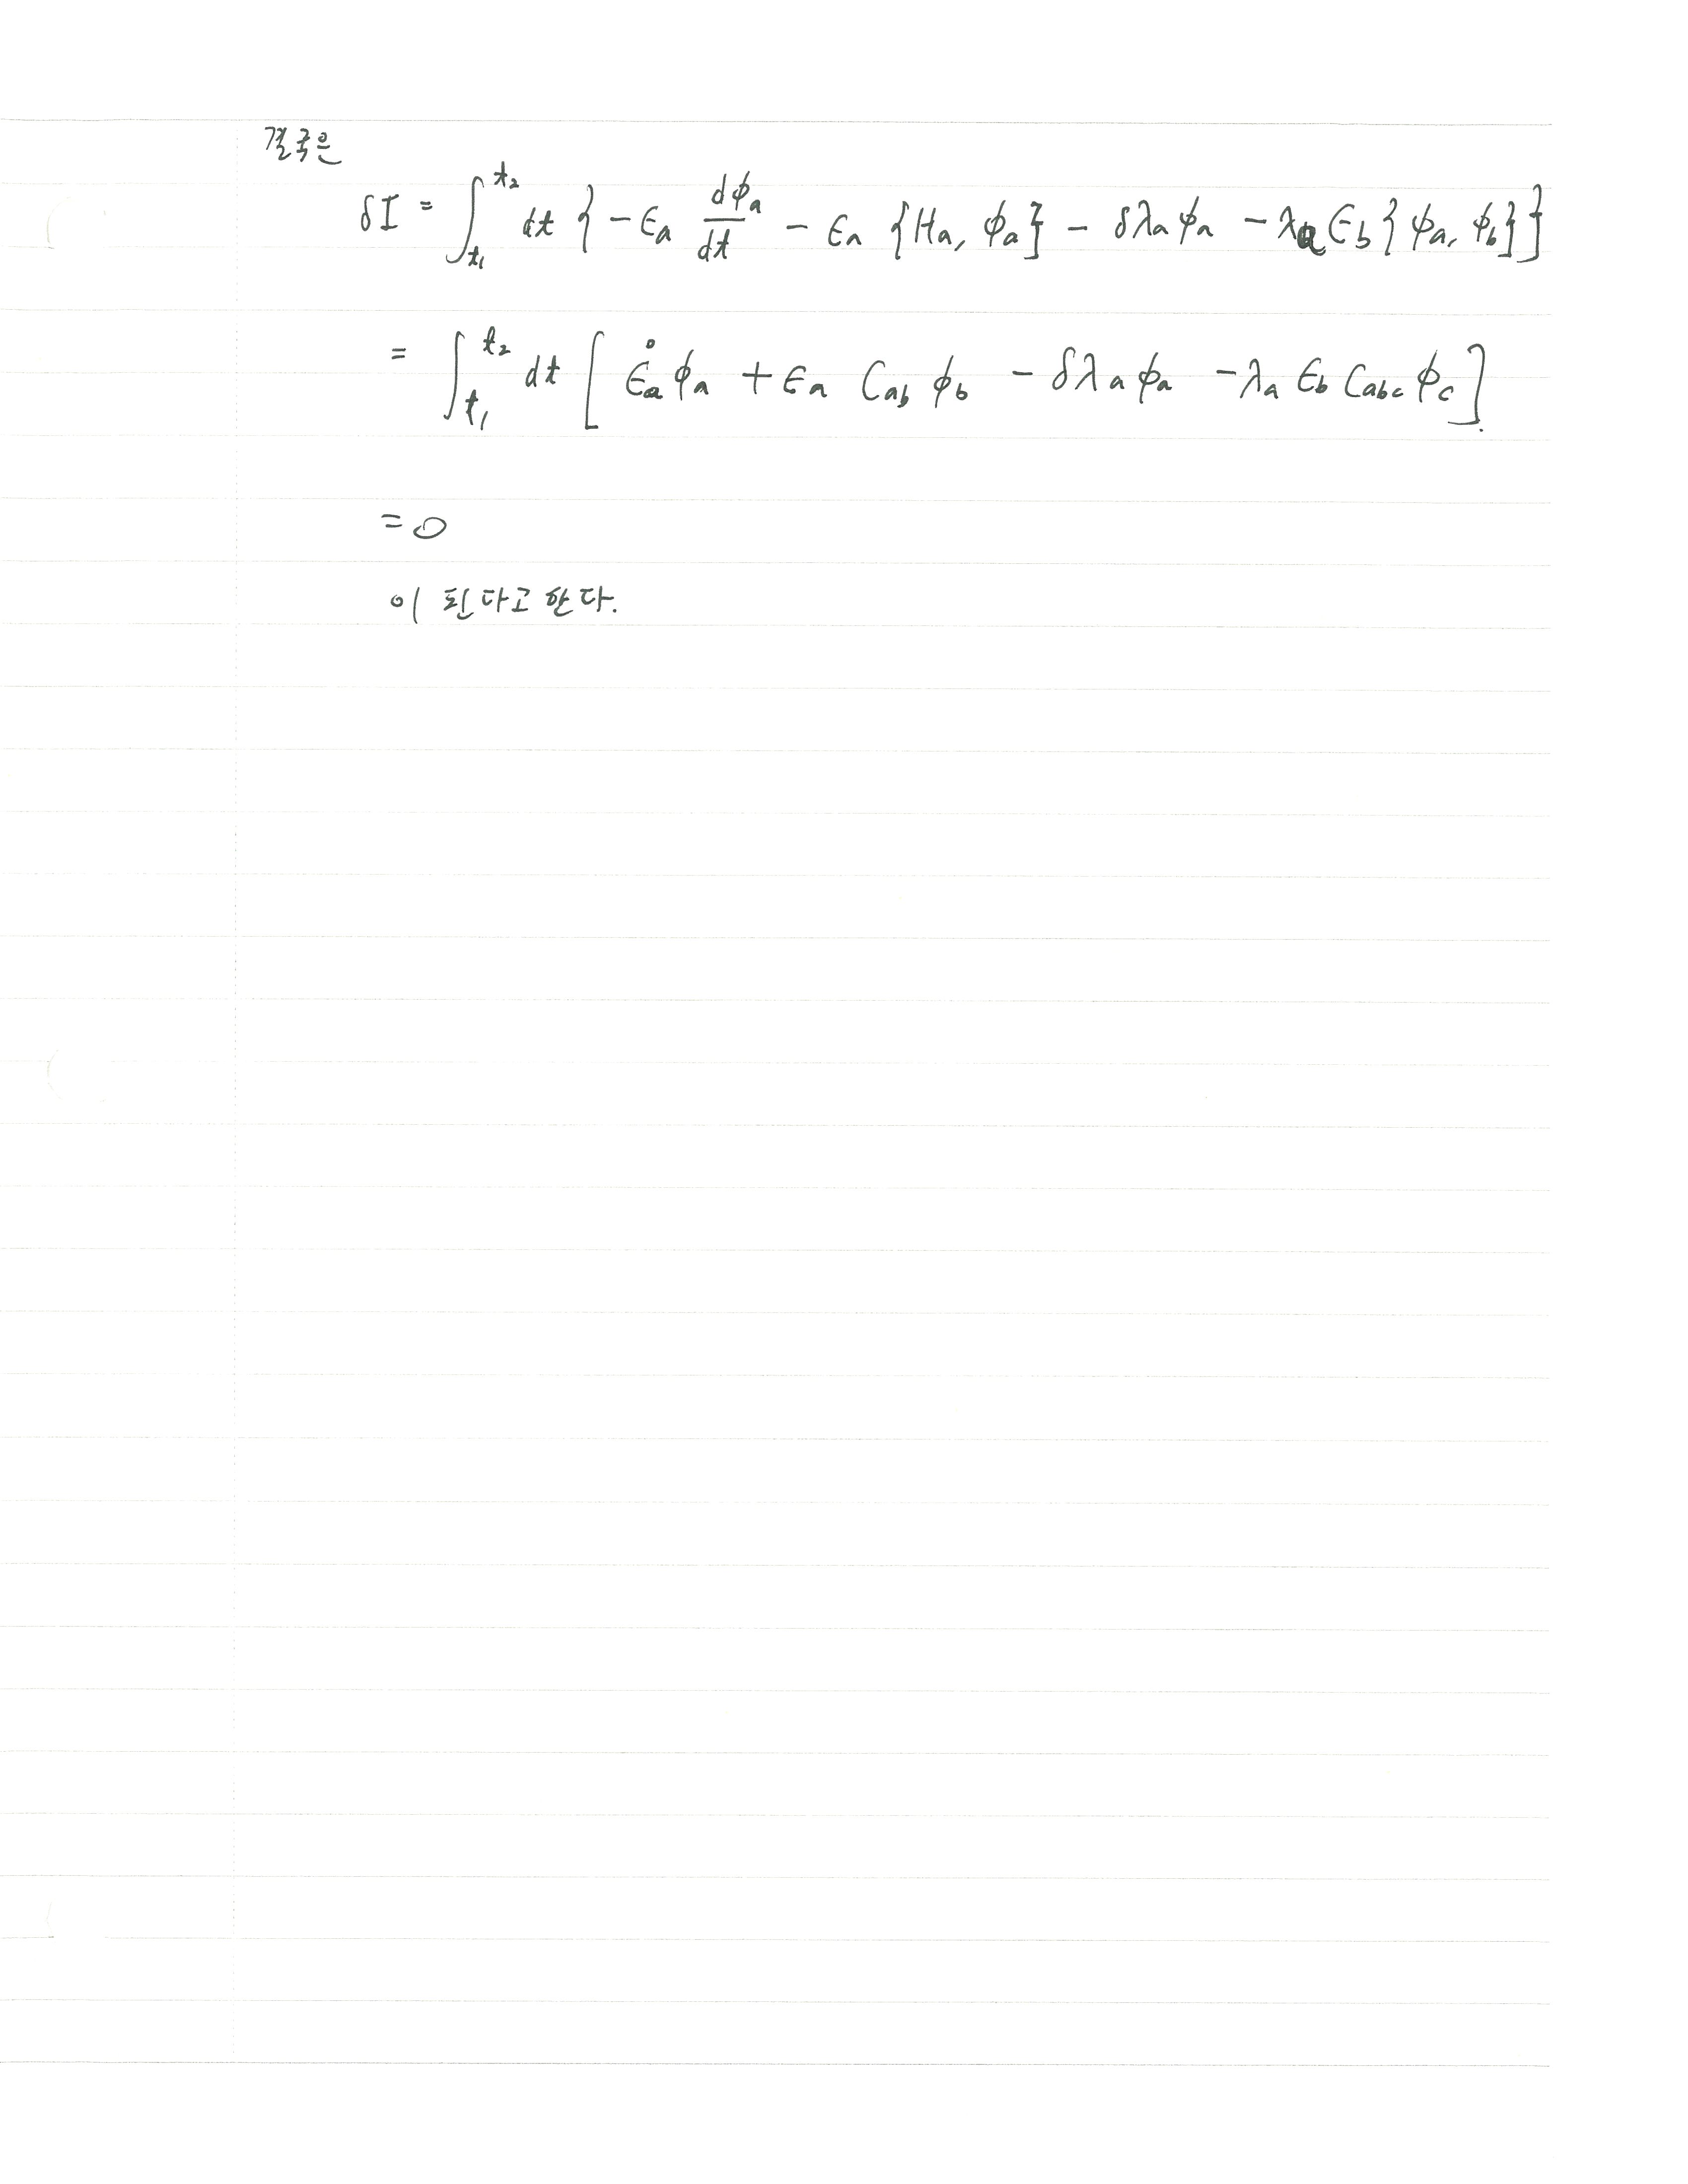 결국은
δI = ∫_{t₁}^{t₂} dt { - ϵₐ dφₐ/dt - ϵₐ {Hₐ, φₐ} - δλₐ φₐ - λₐ ϵ_b { φₐ, φ_b } }
= ∫_{t₁}^{t₂} dt [ ϵ̇ₐ φₐ + ϵₐ C_{ab} φ_b - δλₐ φₐ - λₐ ϵ_b C_{abc} φ_c ].
= 0
이 된다고 한다.